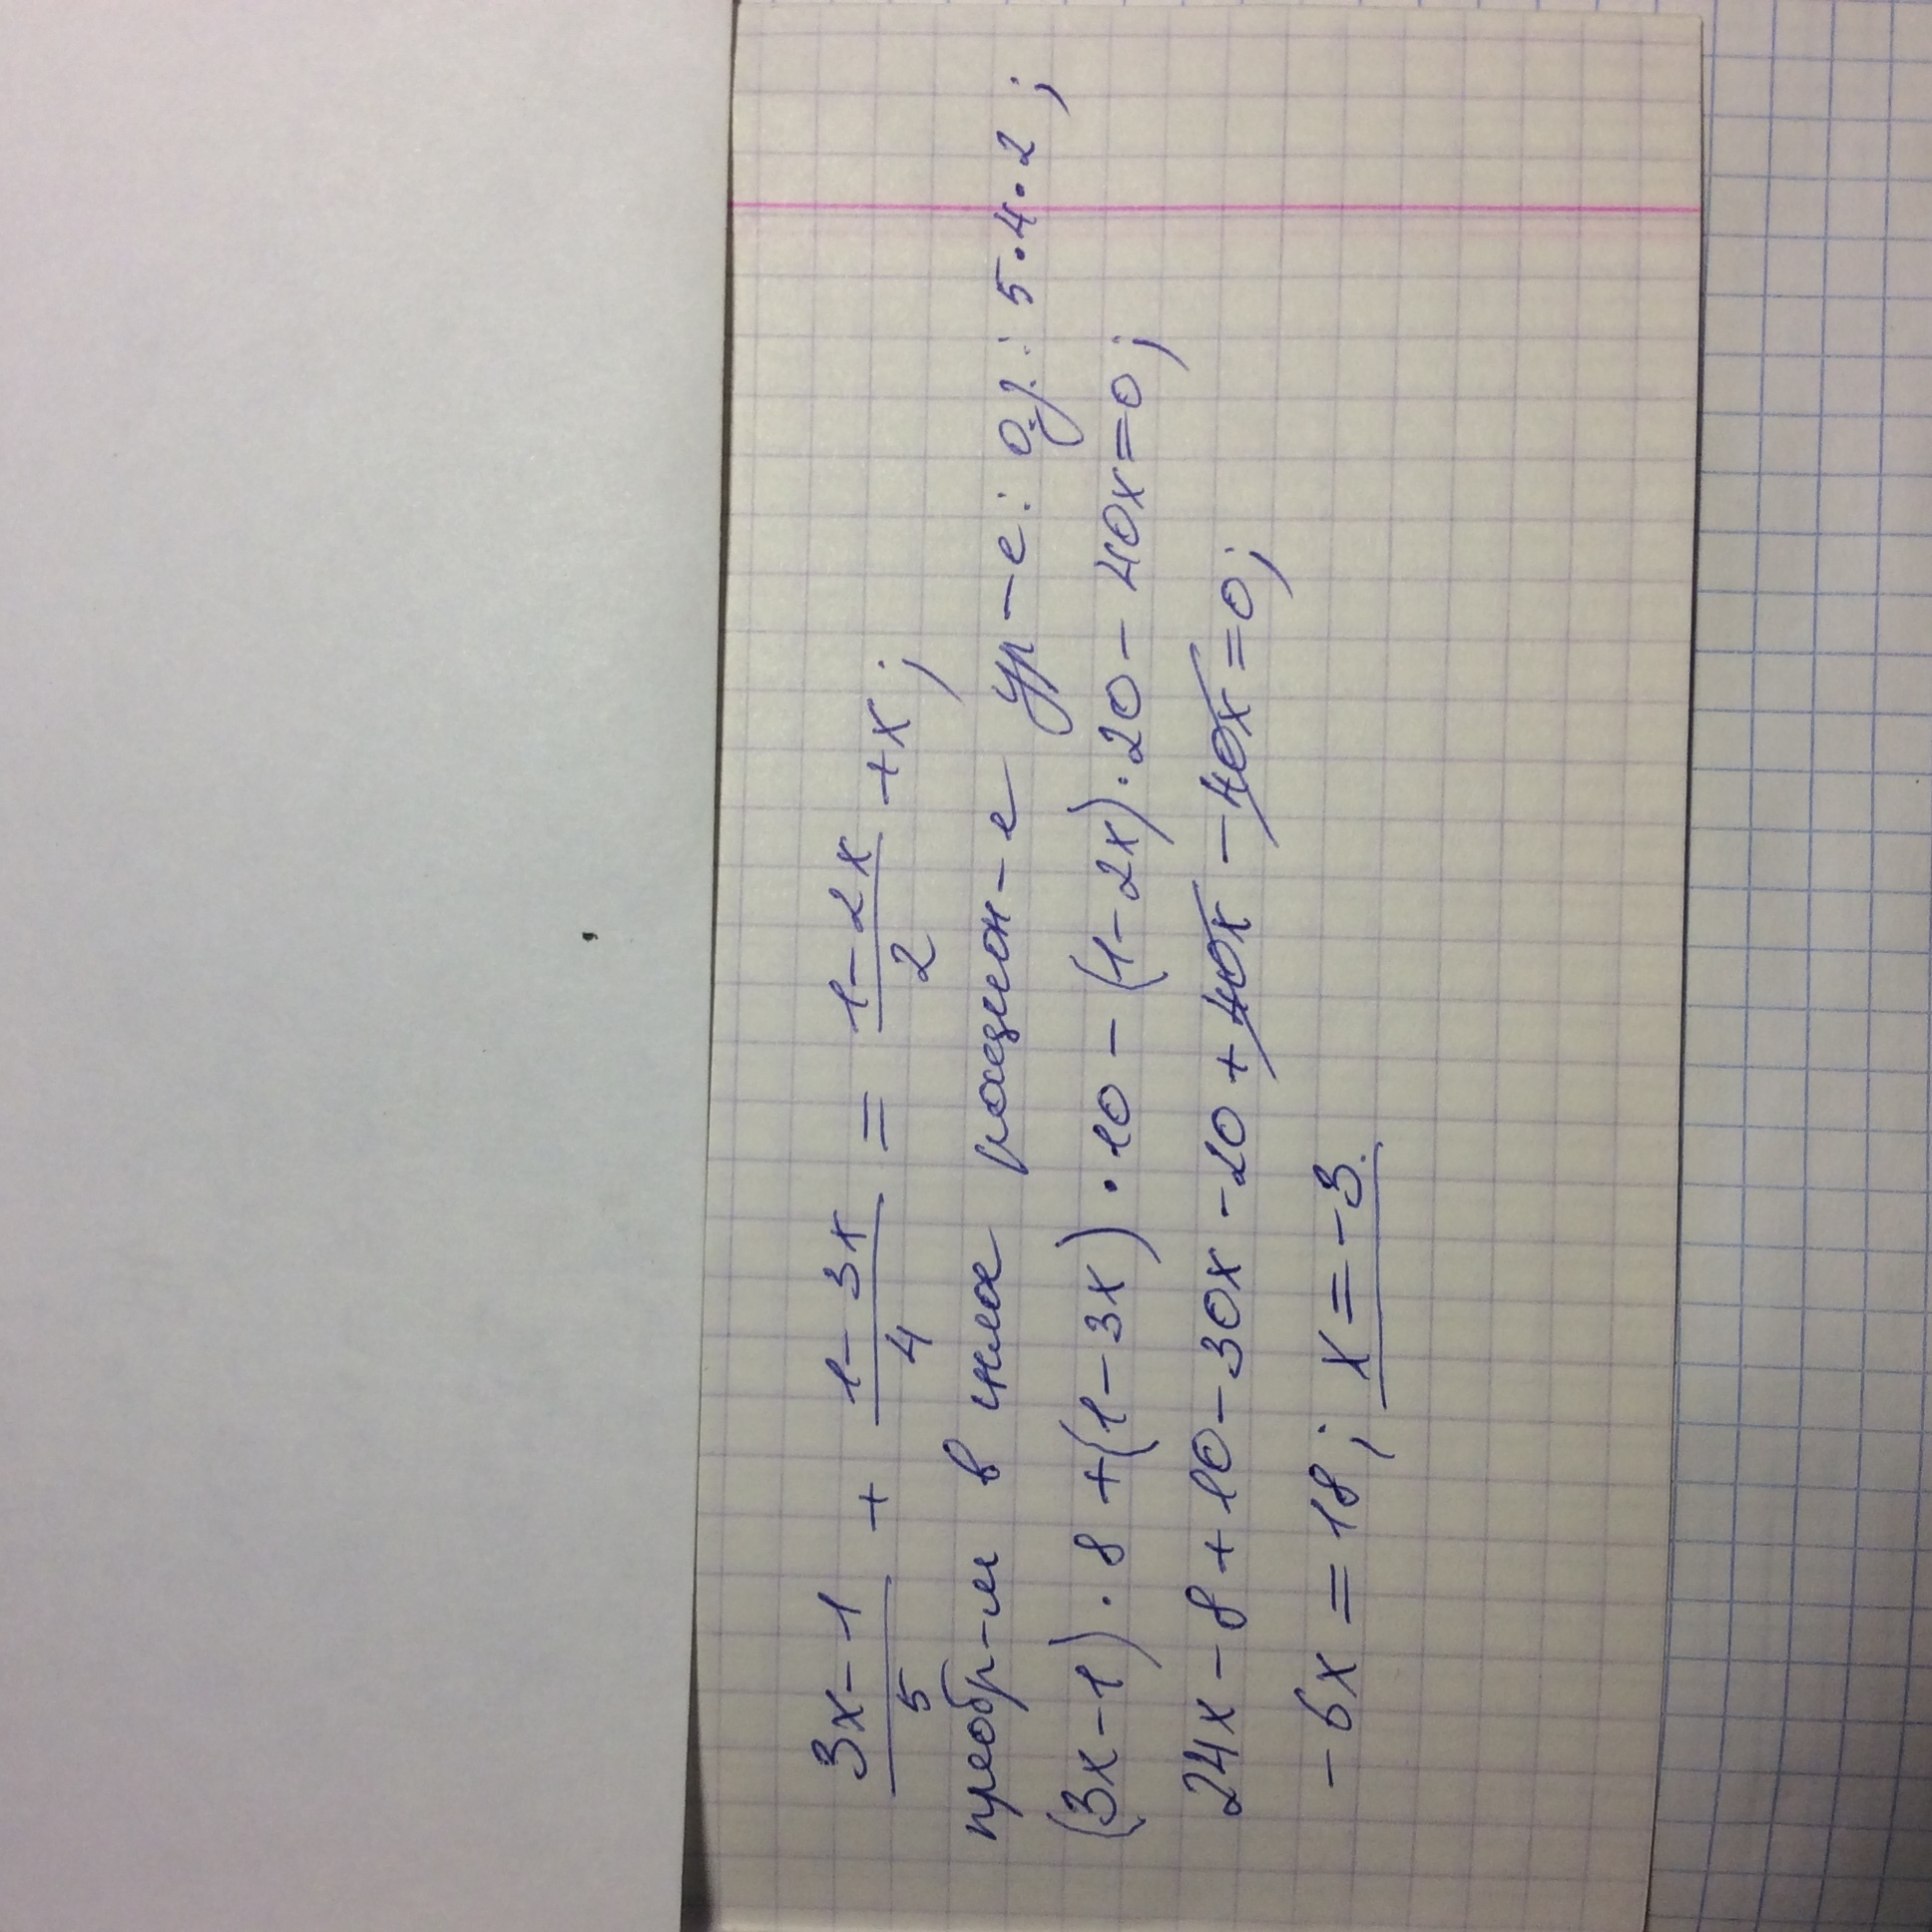 (3x-1)/5 + (1-3x)/4 = (1-2x)/2 + x;
преобр-м в целое рацион-е ур-е: оз: 5·4·2;
(3x-1)·8+(1-3x)·10-(1-2x)·20-40x=0;
24x-8+10-30x-20+40x-40x=0;
-6x=18; x=-3.